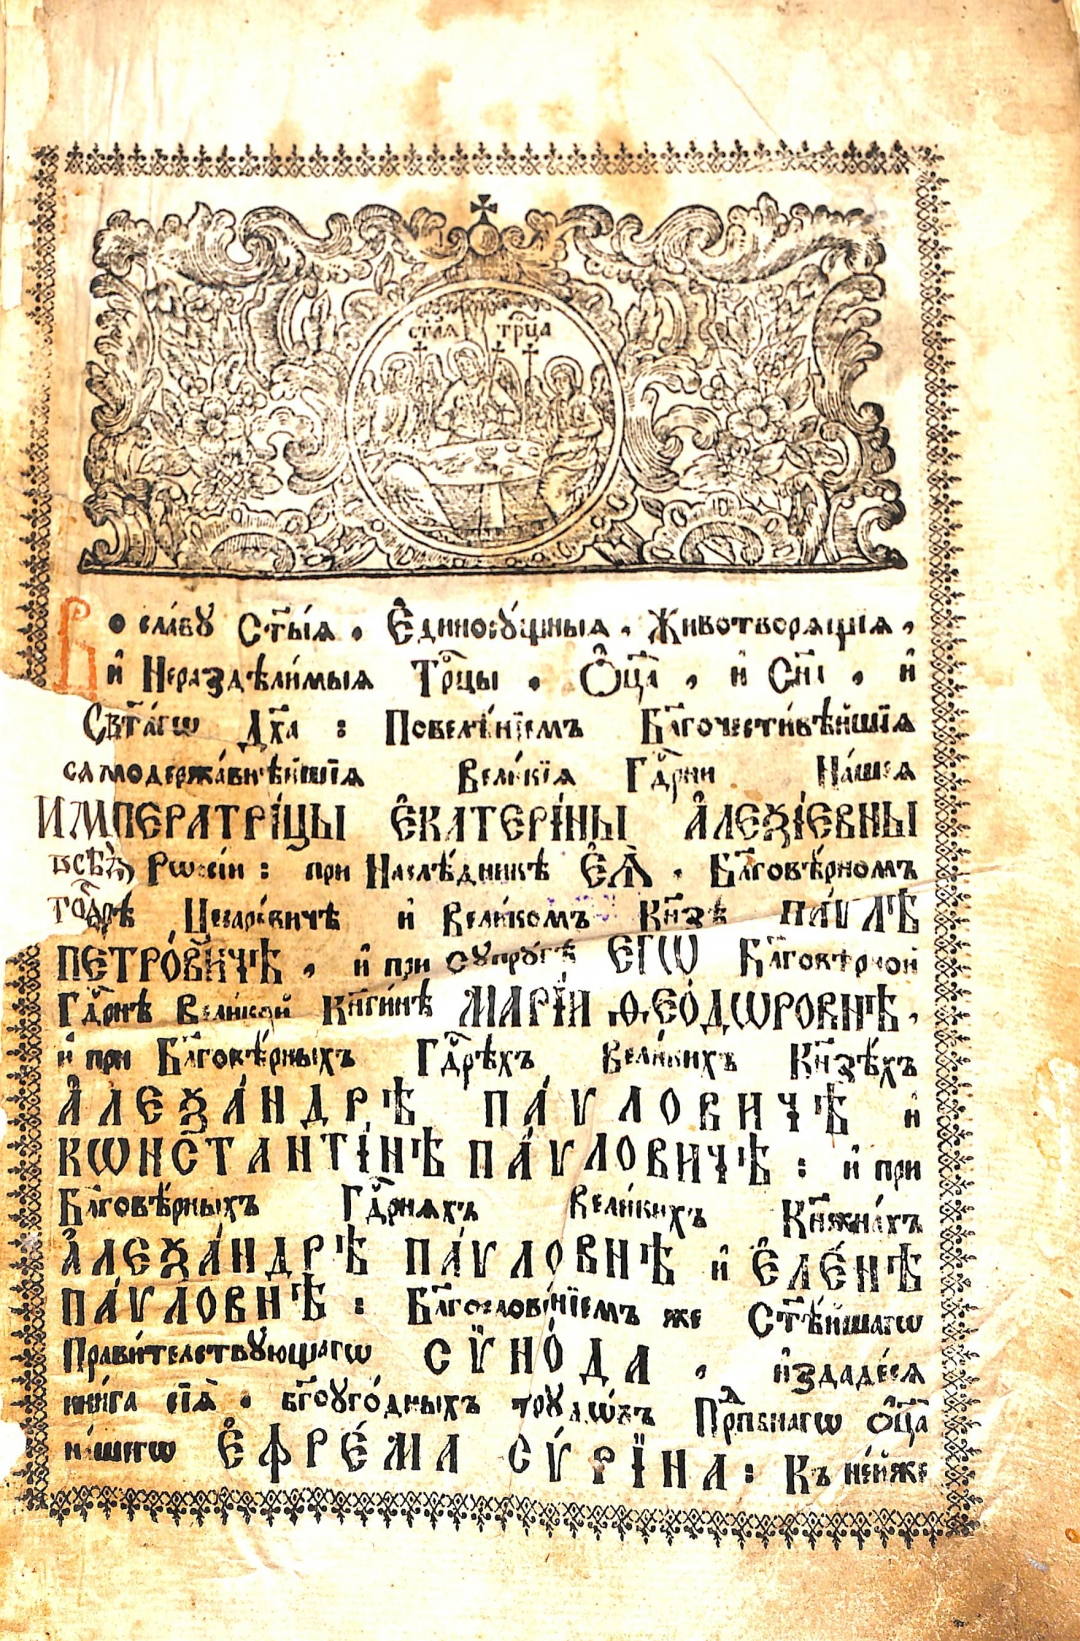 ст҃ая трⷪ҇ца
Во сла́вꙋ Ст҃ы́ѧ, Е҆диносꙋ́щныѧ, Животворѧщїѧ,
и҆ Нераздѣли́мыѧ Трⷪ҇цы, Ѻ҆ц҃а̀, и҆ Сн҃а, и҆
Свѧта́гѡ Дх҃а: Повелѣ́нїемъ Бл҃гочести́вѣйшїѧ
самодержа́внѣйшїѧ Вели́кїѧ Гдⷭ҇рни На́шеѧ
И҆МПЕРАТРІ́ЦЫ Е҆КАТЕРІ́НЫ А҆ЛЕѮІ́ЕВНЫ
всеѧ̀ Рѡссі́и: при Наслѣ́дникѣ Е҆Ѧ̀, Бл҃говѣ́рномъ
Гдⷭ҇рѣ Цесаре́вичѣ и҆ Вели́комъ Кн҃зѣ ПА́ѴЛѢ
ПЕТРО́ВИЧѢ, и҆ при сꙋпрꙋ́гѣ Е҆ГѠ̀ Бл҃говѣ́рной
Гдⷭ҇рнѣ Вели́кой Кн҃ги́нѣ МАРІ́И Ѳ҆ЕО́ДѠРОВНѢ,
и҆ при Бл҃говѣ́рныхъ Гдⷭ҇рѣхъ Вели́кихъ Кн҃зѣ́хъ
А҆ЛЕѮА́НДРѢ ПА́ѴЛОВИЧѢ и҆
КѠНСТАНТІ́НѢ ПА́ѴЛОВИЧѢ: и҆ при
Бл҃говѣ́рныхъ Гдⷭ҇рнѧхъ Вели́кихъ Кн҃жна́хъ
А҆ЛЕѮА́НДРѢ ПА́ѴЛОВНѢ и҆ Е҆ЛЕ́НѢ
ПА́ѴЛОВНѢ: Бл҃гослове́нїемъ же Ст҃ѣ́йшагѡ
Прави́тельствꙋющагѡ СѴНО́ДА, и҆здаде́сѧ
кни́га сїѧ̀, бг҃оꙋго́дныхъ трꙋдѡ́въ Прⷣпбнагѡ Ѻ҆ц҃а̀
на́шегѡ Е҆ФРЕ́МА СѴ́РІНА: Къ не́йже